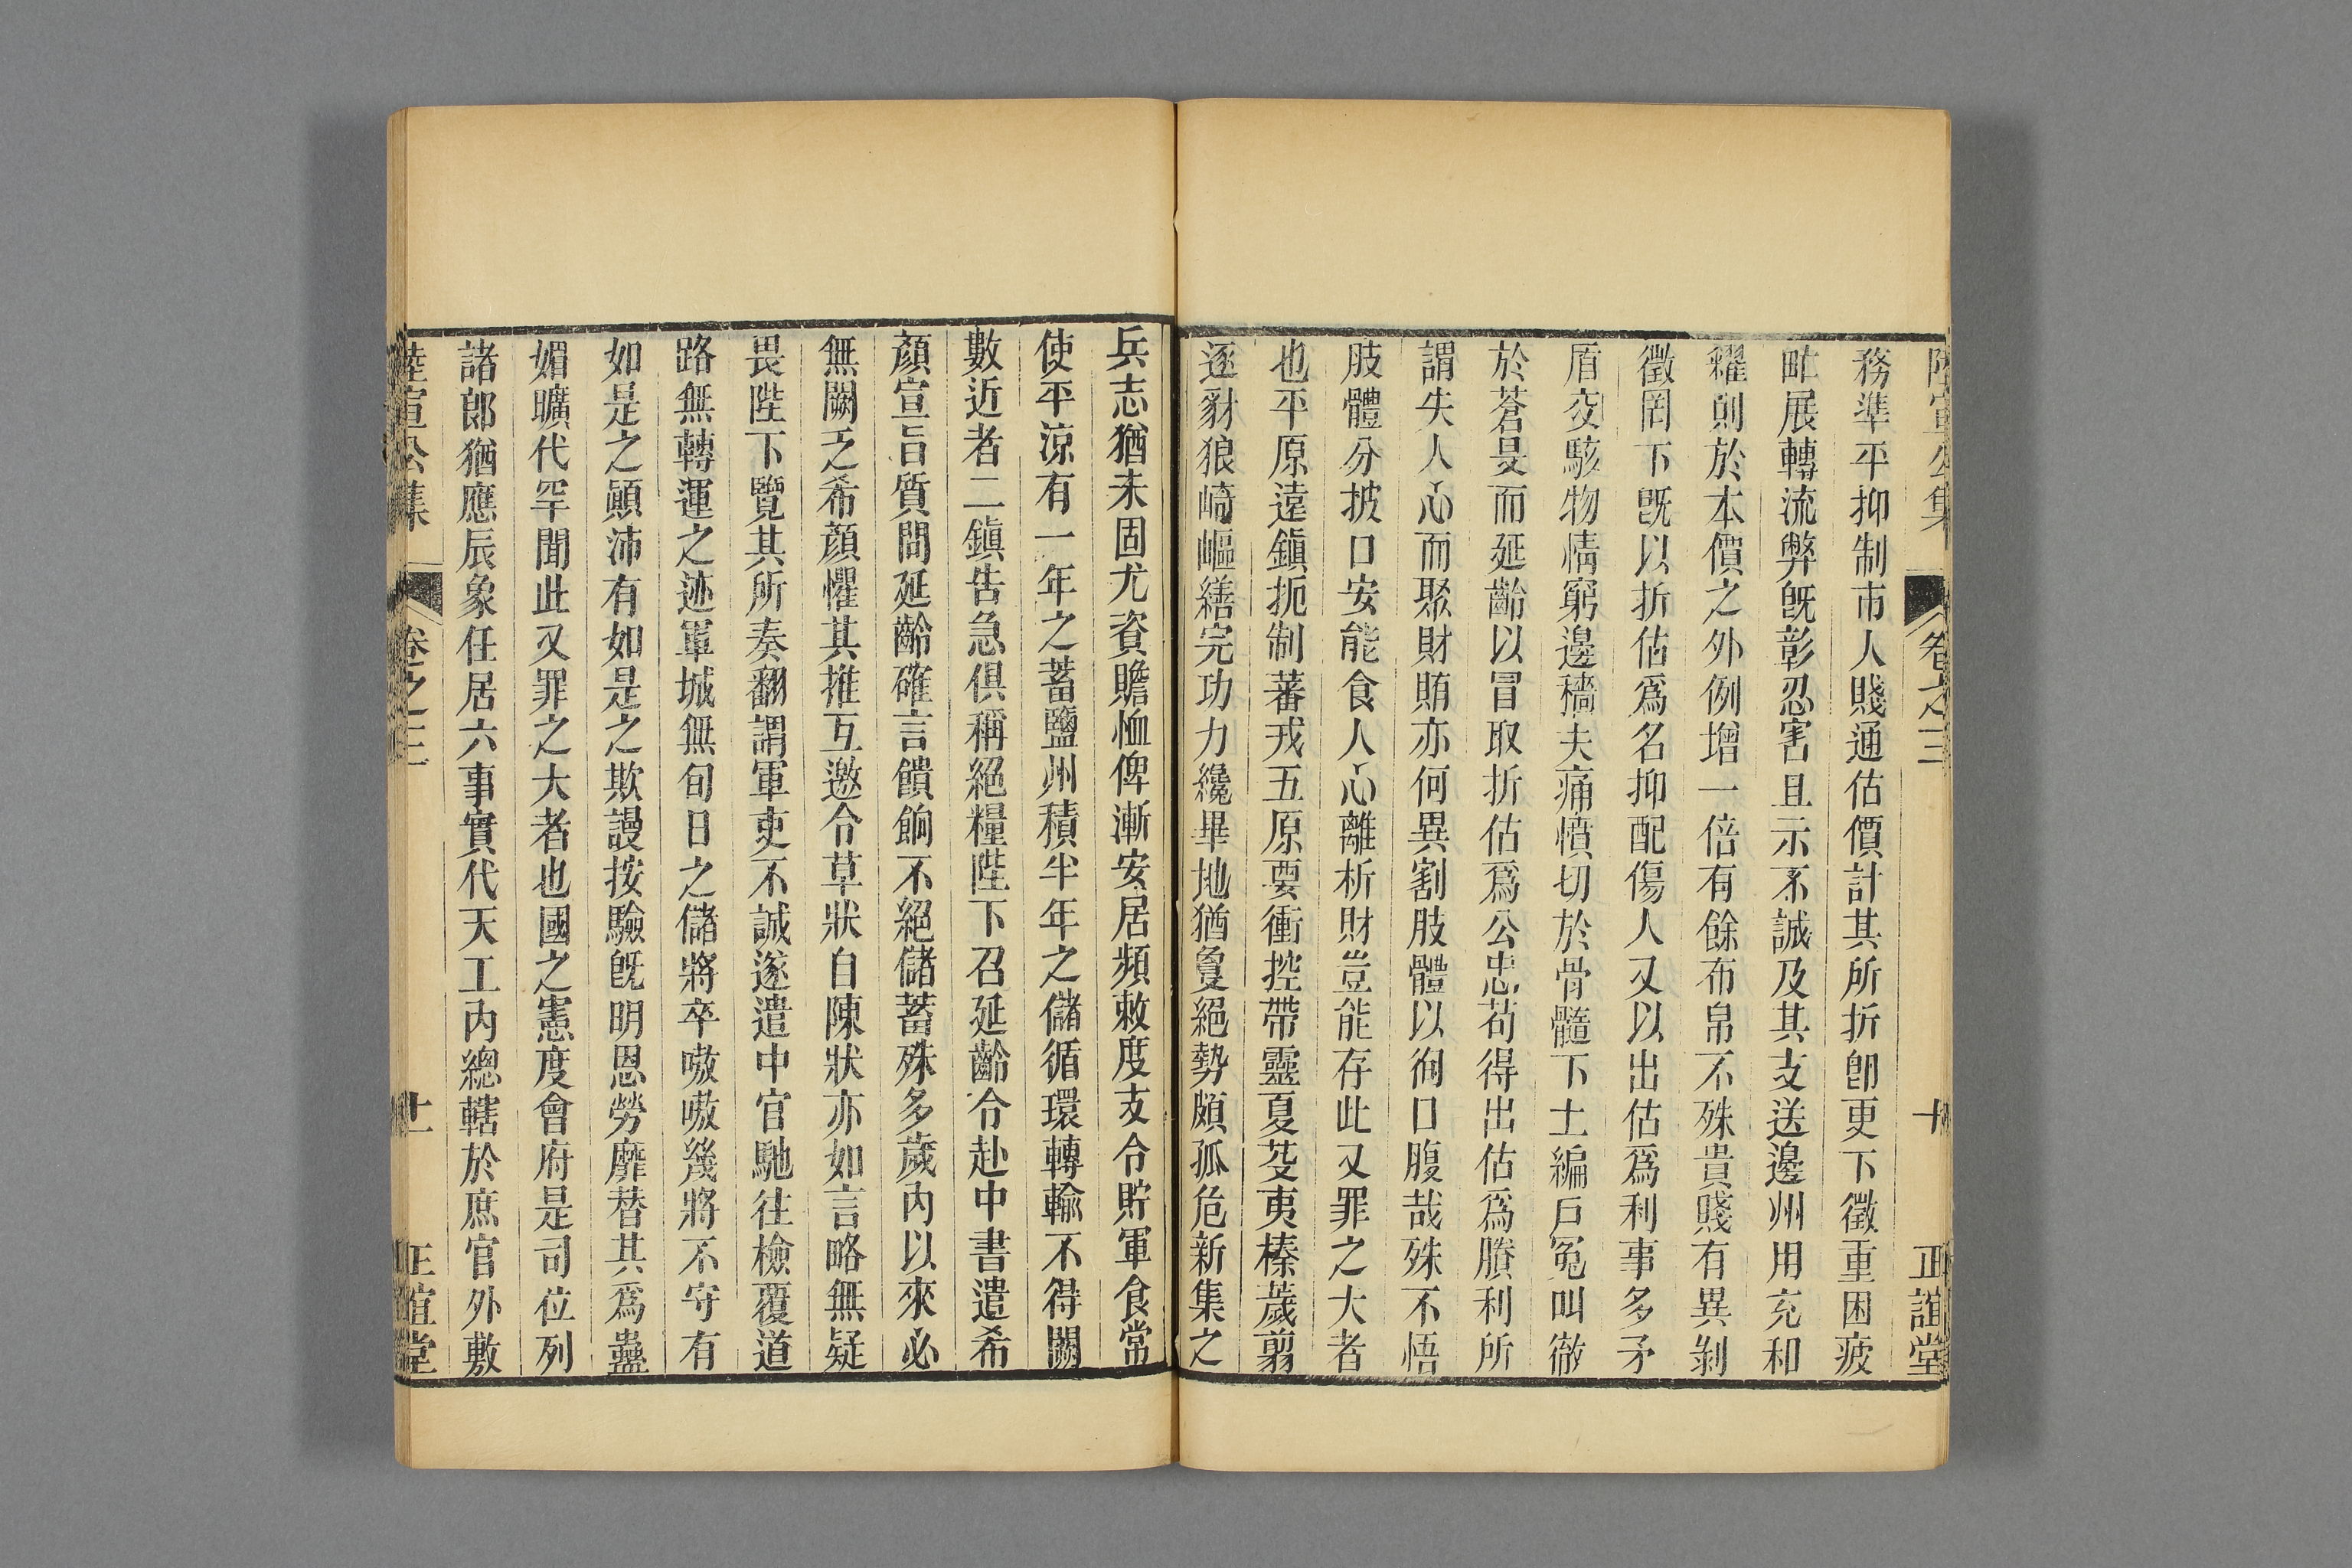 陸宣公集 卷之三 十 正誼堂
務準平抑制市人賤通估價計其所折卽更下徵重困疲
甿展轉流弊旣彰忍害且示不誠及其支送邊州用充和
糴則於本價之外例增一倍有餘布帛不殊貴賤有異剝
徵罔下旣以折估爲名抑配傷人又以出估爲利事多矛
盾交駭物情窮邊穡夫痛憤切於骨髓下土編戶冤叫徹
於蒼旻而延齡以冒取折估爲公忠苟得出估爲賸利所
謂失人心而聚財賄亦何異割肢體以徇口腹哉殊不悟
肢體分披口安能食人心離析財豈能存此又罪之大者
也平原遠鎭扼制蕃戎五原要衝控帶靈夏芟夷榛薉剪
逐豺狼崎嶇繕完功力纔畢地猶敻絕勢頗孤危新集之
兵志猶未固尤資贍恤俾漸安居頻敕度支令貯軍食常
使平涼有一年之蓄鹽州積半年之儲循環轉輸不得闕
數近者二鎭告急俱稱絕糧陛下召延齡令赴中書遣希
顏宣旨質問延齡確言饋餉不絕儲蓄殊多歲內以來必
無闕乏希顏懼其推互邀令草狀自陳狀亦如言略無疑
畏陛下覽其所奏翻謂軍吏不誠遂遣中官馳往檢覆道
路無轉運之迹軍城無旬日之儲將卒嗷嗷幾將不守有
如是之顚沛有如是之欺謾按驗旣明恩勞靡替其爲蠱
媚曠代罕聞此又罪之大者也國之憲度會府是司位列
諸郎猶應辰象任居六事實代天工內總轄於庶官外敷
陸宣公集 卷之三 十一 正誼堂